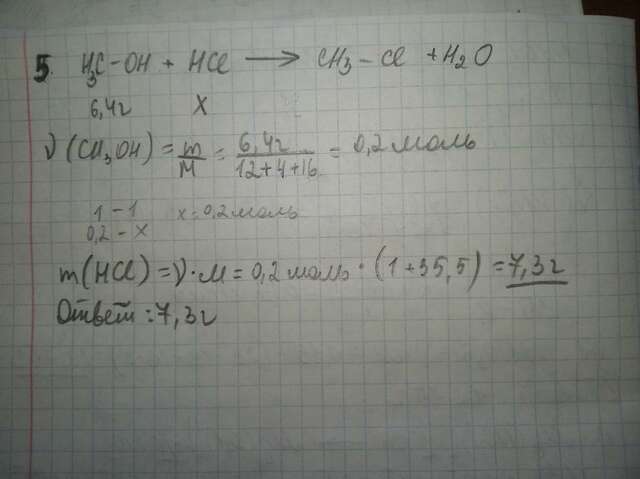 5. H₃C-OH + HCl ⟶ CH₃-Cl + H₂O
6,4г X
ν(CH₃OH) = m/M = 6,4г/12+4+16 = 0,2 моль
1 - 1 x = 0,2 моль
0,2 - x
m(HCl) = ν·M = 0,2 моль · (1+35,5) = 7,3г
Ответ: 7,3г